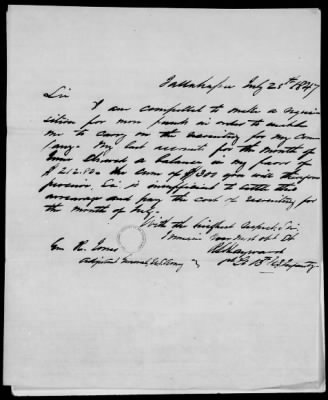 Tallahassee July 25th 1847
Sir
I am compelled to make a requi
sition for more funds in order to enable
me to carry on the recruiting for my Com
pany. My last account for the month of
June showed a balance in my favor of
$212.80. the sum of $300 you will therefore
perceive Sir is insufficient to settle this
arrearage and pay the cost of recruiting for
the month of July.
With the highest respect Sir
I remain Your Most obt St
Hayward
Gen R. Jones
Adjutant General U.S. Army